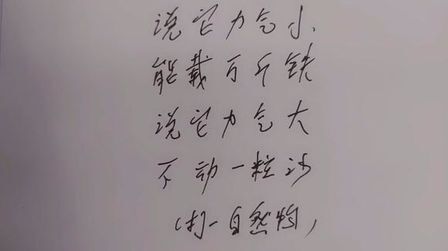 说它力气小,
能载万斤铁
说它力气大
不动一粒沙
(打一自然物)